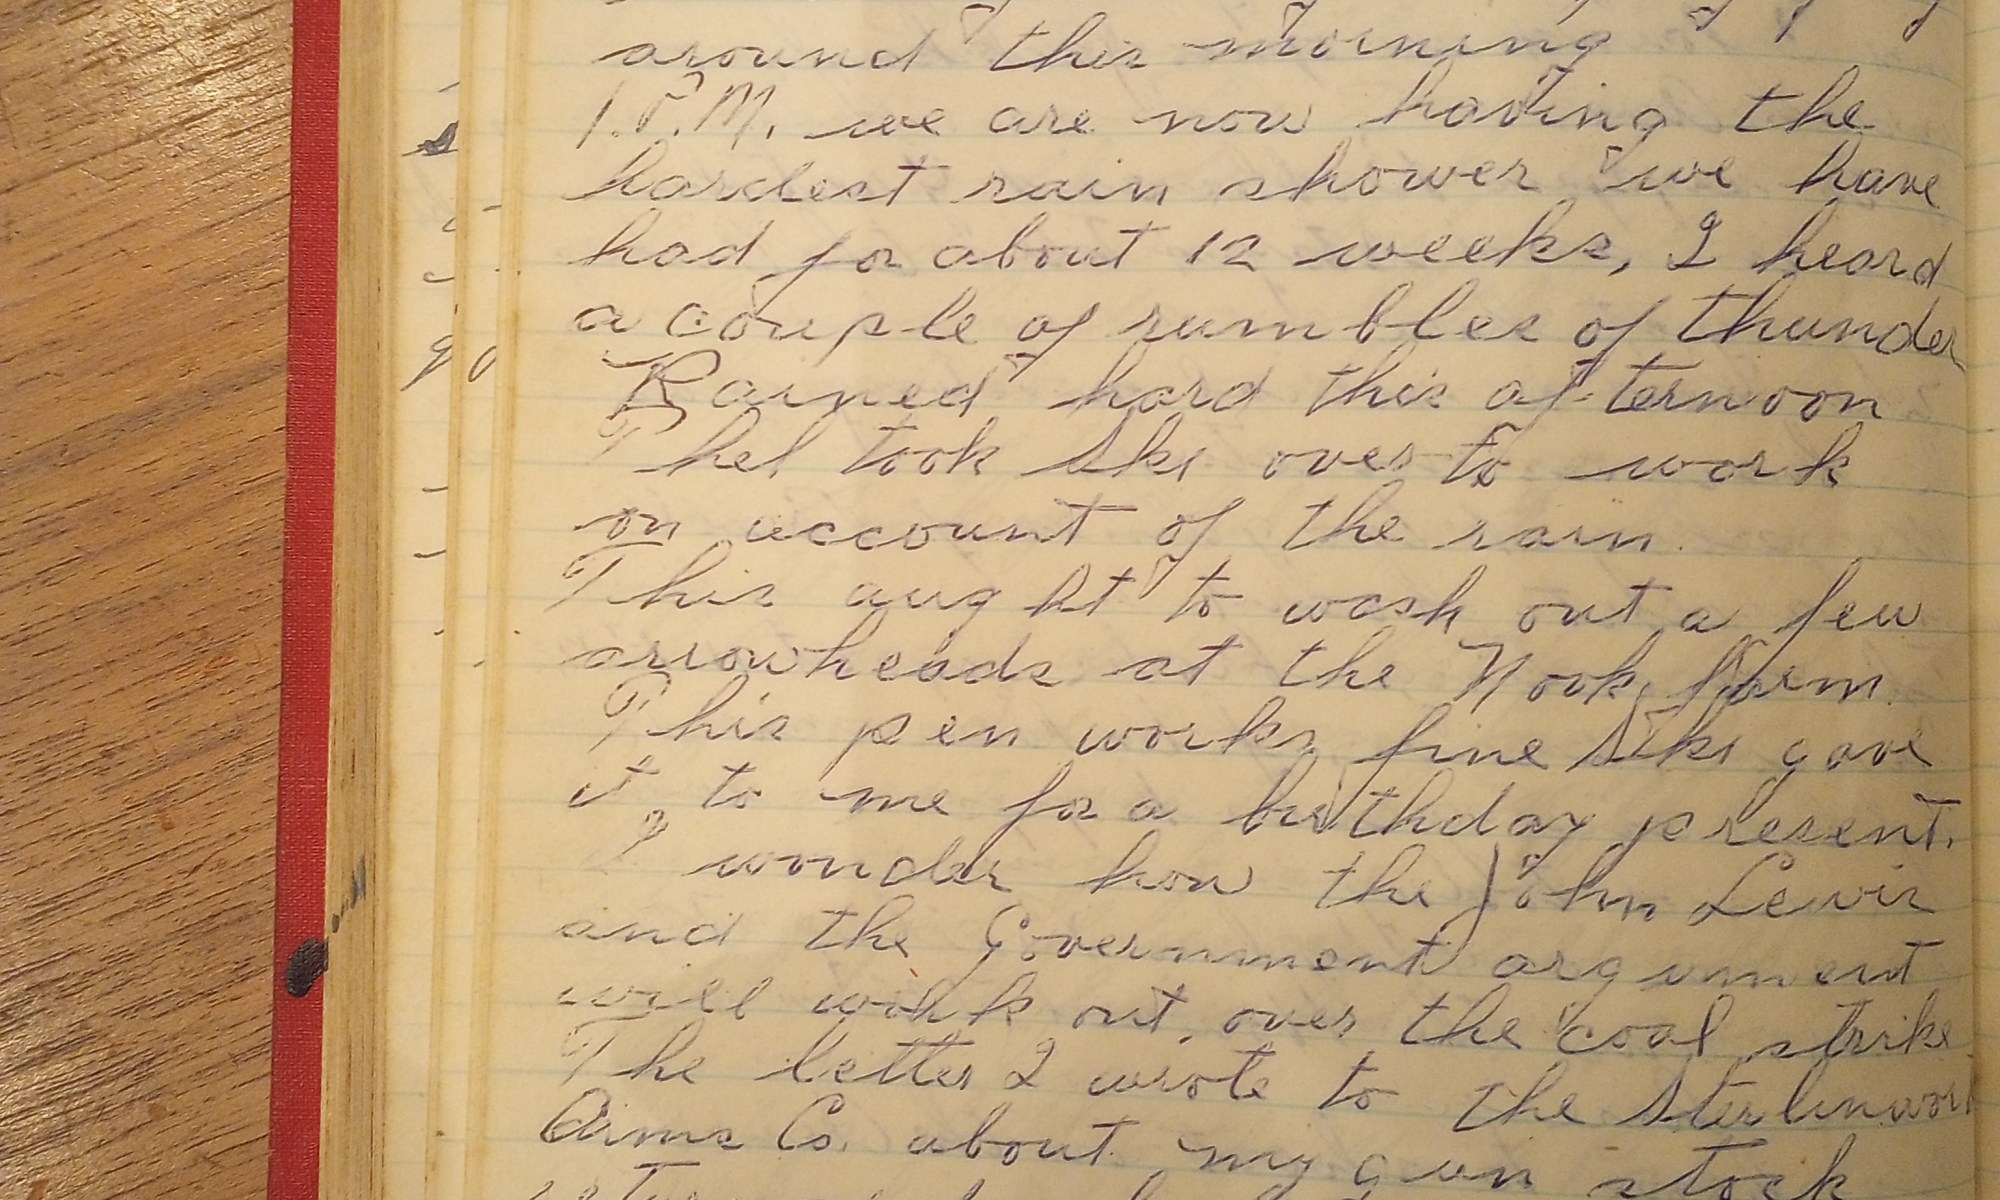 around this morning
1.P.M. we are now having the
hardest rain shower we have
had for about 12 weeks, I heard
a couple of rumbles of thunder
Rained hard this afternoon
Phel took Ski over to work
on account of the rain.
This aught to wash out a few
arrowheads at the Nook farm.
This pen works fine Ski gave
it to me for a birthday present.
I wonder how the John Lewis
and the Government argument
will work out, over the coal strike
The letter I wrote to the Sterlinwork
Arms Co. about my gun stock